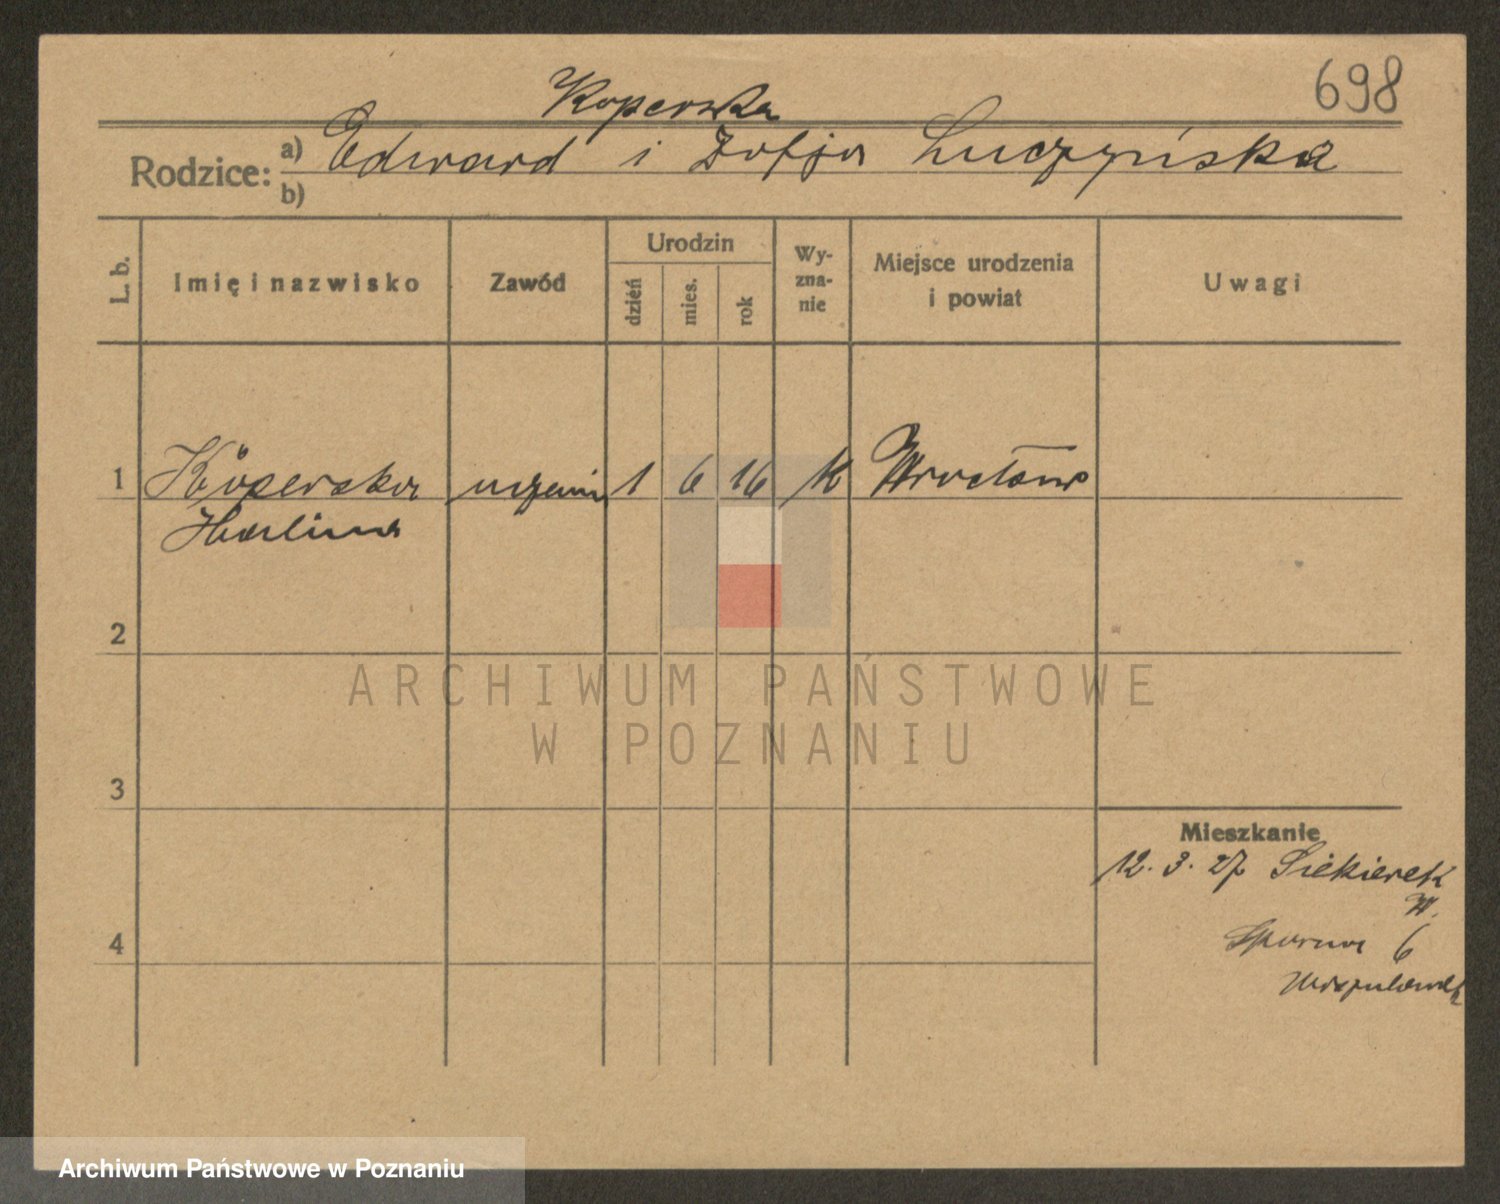 698
Koperska
Rodzice: a) Edward i Zofja Łuczyńska
b)
L. b. Imię i nazwisko Zawód Urodzin dzień mies. rok Wyznanie Miejsce urodzenia i powiat Uwagi
1 Köperska uczenn 1 6 16 k Wrocław
Halina
2
ARCHIWUM PAŃSTWOWE
W POZNANIU
3
Mieszkanie
12. 3. 27 Siekierek
W.
4 Sporna 6
Archiwum Państwowe w Poznaniu